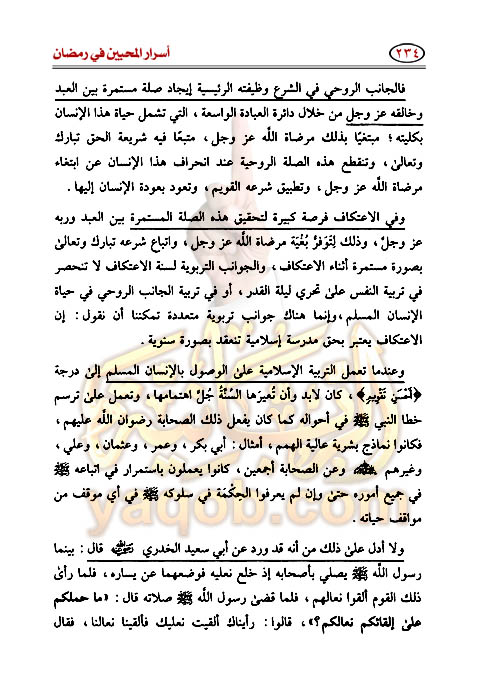 ٢٣٤
أسرار المحبين في رمضان
فالجانب الروحي في الشرع وظيفته الرئيسية إيجاد صلة مستمرة بين العبد
وخالقه عز وجل من خلال دائرة العبادة الواسعة ، التي تشمل حياة هذا الإنسان
بكليته ؛ مبتغيًا بذلك مرضاة اللَّه عز وجل ، متبعًا فيه شريعة الحق تبارك
وتعالىٰ ، وتنقطع هذه الصلة الروحية عند انحراف هذا الإنسان عن ابتغاء
مرضاة اللَّه عز وجل ، وتطبيق شرعه القويم ، وتعود بعودة الإنسان إليها .
وفي الاعتكاف فرصة كبيرة لتحقيق هذه الصلة المستمرة بين العبد وربه
عز وجلَّ ، وذلك لِتَوَفُّرِ بُغْيَة مرضاة اللَّه عز وجل ، واتباع شرعه تبارك وتعالىٰ
بصورة مستمرة أثناء الاعتكاف ، والجوانب التربوية لسنة الاعتكاف لا تنحصر
في تربية النفس علىٰ تحري ليلة القدر ، أو في تربية الجانب الروحي في حياة
الإنسان المسلم ، وإنما هناك جوانب تربوية متعددة تمكننا أن نقول : إن
الاعتكاف يعتبر بحق مدرسة إسلامية تنعقد بصورة سنوية .
وعندما تعمل التربية الإسلامية علىٰ الوصول بالإنسان المسلم إلىٰ درجة
﴿أَحْسَنِ تَقْوِيمٍ﴾ ، كان لابد وأن تُعيرَها السُّنَّةُ جُلَّ اهتمامها ، وتعمل علىٰ ترسم
خطا النبي ﷺ في أحواله كما كان يفعل ذلك الصحابة رضوان اللَّه عليهم ،
فكانوا نماذج بشرية عالية الهمم ، أمثال : أبي بكر ، وعمر ، وعثمان ، وعلي ،
وغيرهم وعن الصحابة أجمعين ، كانوا يعملون باستمرار في اتباعه ﷺ
في جميع أموره حتىٰ وإن لم يعرفوا الحِكْمَة في سلوكه ﷺ في أي موقف من
مواقف حياته .
ولا أدل علىٰ ذلك من أنه قد ورد عن أبي سعيد الخدري رضي الله عنه قال : بينما
رسول اللَّه ﷺ يصلي بأصحابه إذ خلع نعليه فوضعهما عن يساره ، فلما رأىٰ
ذلك القوم ألقوا نعالهم ، فلما قضىٰ رسول اللَّه ﷺ صلاته قال : «ما حملكم
علىٰ إلقائكم نعالكم؟» ، قالوا : رأيناك ألقيت نعليك فألقينا نعالنا ، فقال
yaqob.com